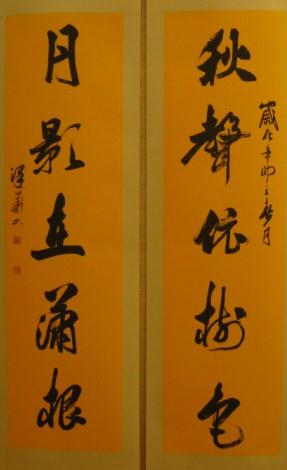 秋聲依樹色
歲次辛卯之月
月影在蒲根
華書